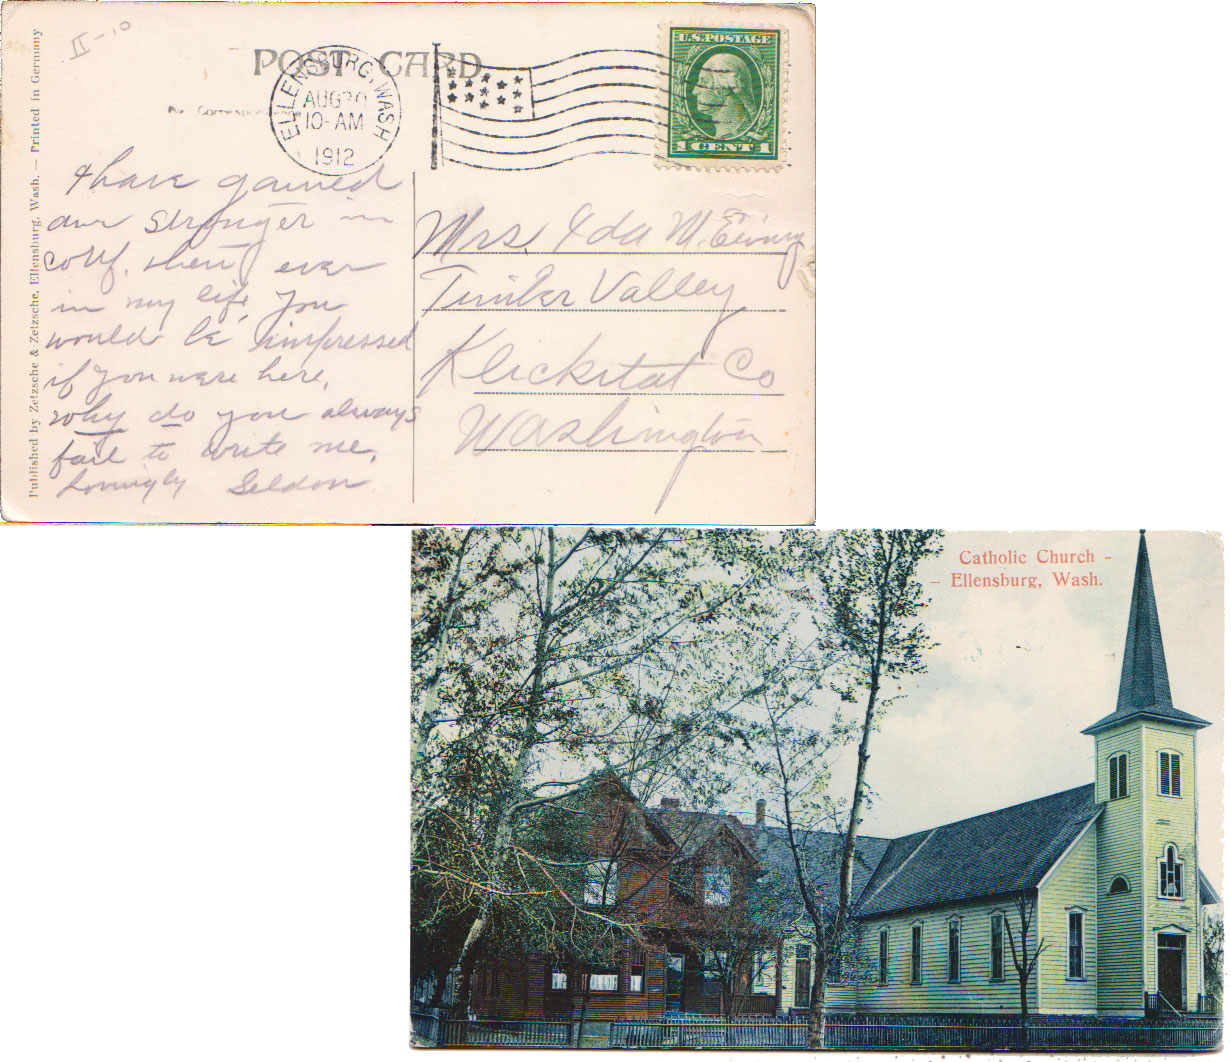 II-10
POST CARD
ELLENSBURG, WASH.
AUG 30
10-AM
1912
U.S. POSTAGE
1 CENT 1
Published by Zetzsche & Zetzsche, Ellensburg, Wash. — Printed in Germany
I have gained
am stronger in
then ever
in my life, you
would be impressed
if you were here,
why do you always
fail to write me,
Lovingly Seldon.
Mrs. Ida McEwing
Timber Valley
Klickitat Co
Washington
Catholic Church -
- Ellensburg, Wash.